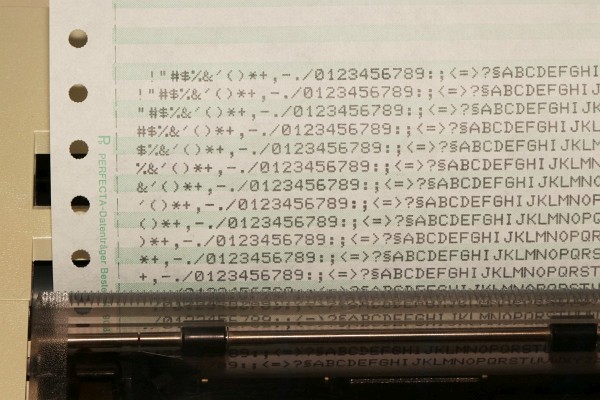 !"#$%&'()*+,-./0123456789:;<=>?§ABCDEFGHI
!"#$%&'()*+,-./0123456789:;<=>?§ABCDEFGHIJ
"#$%&'()*+,-./0123456789:;<=>?§ABCDEFGHIJK
#$%&'()*+,-./0123456789:;<=>?§ABCDEFGHIJKL
$%&'()*+,-./0123456789:;<=>?§ABCDEFGHIJKLM
%&'()*+,-./0123456789:;<=>?§ABCDEFGHIJKLMN
&'()*+,-./0123456789:;<=>?§ABCDEFGHIJKLMNO
'()*+,-./0123456789:;<=>?§ABCDEFGHIJKLMNOP
()*+,-./0123456789:;<=>?§ABCDEFGHIJKLMNOPQ
)*+,-./0123456789:;<=>?§ABCDEFGHIJKLMNOPQR
*+,-./0123456789:;<=>?§ABCDEFGHIJKLMNOPQRS
+,-./0123456789:;<=>?§ABCDEFGHIJKLMNOPQRST
PERFECTA-Datenträger